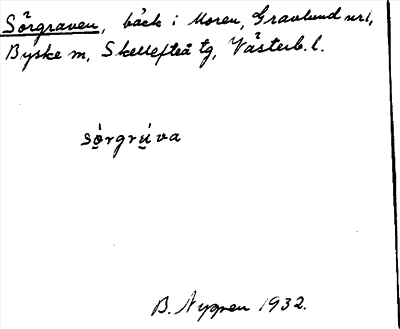 Sörgraven, bäck i Moren, Gravlund nr 1,
Byske m, Skellefteå tg, Västerb. l.
sörgru̠va
B. Nygren 1932.